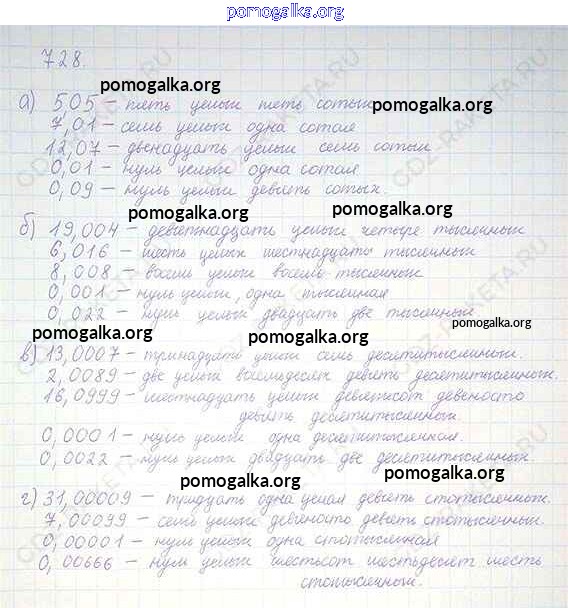 pomogalka.org
728.
pomogalka.org
а) 505 – пять целых пять сотых pomogalka.org
7,01 – семь целых одна сотая
12,07 – двенадцать целых семь сотых
0,01 – нуль целых одна сотая
0,09 – нуль целых девять сотых.
pomogalka.org
б) 19,004 – девятнадцать целых четыре тысячных
6,016 – шесть целых шестнадцать тысячных
8,008 – восемь целых восемь тысячных
0,001 – нуль целых, одна тысячная
0,022 – нуль целых двадцать две тысячных
pomogalka.org pomogalka.org pomogalka.org
в) 13,0007 – тринадцать целых семь десятитысячных.
2,0089 – две целых восемьдесят девять десятитысячных.
16,0999 – шестнадцать целых девятьсот девяносто
девять десятитысячных.
0,0001 – нуль целых одна десятитысячная.
0,0022 – нуль целых двадцать две десятитысячных.
pomogalka.org pomogalka.org
г) 31,00009 – тридцать одна целая девять стотысячных.
7,00099 – семь целых девяносто девять стотысячных.
0,00001 – нуль целых одна стотысячная
0,00666 – нуль целых шестьсот шестьдесят шесть
стотысячных.
GDZ-RAKETA.RU